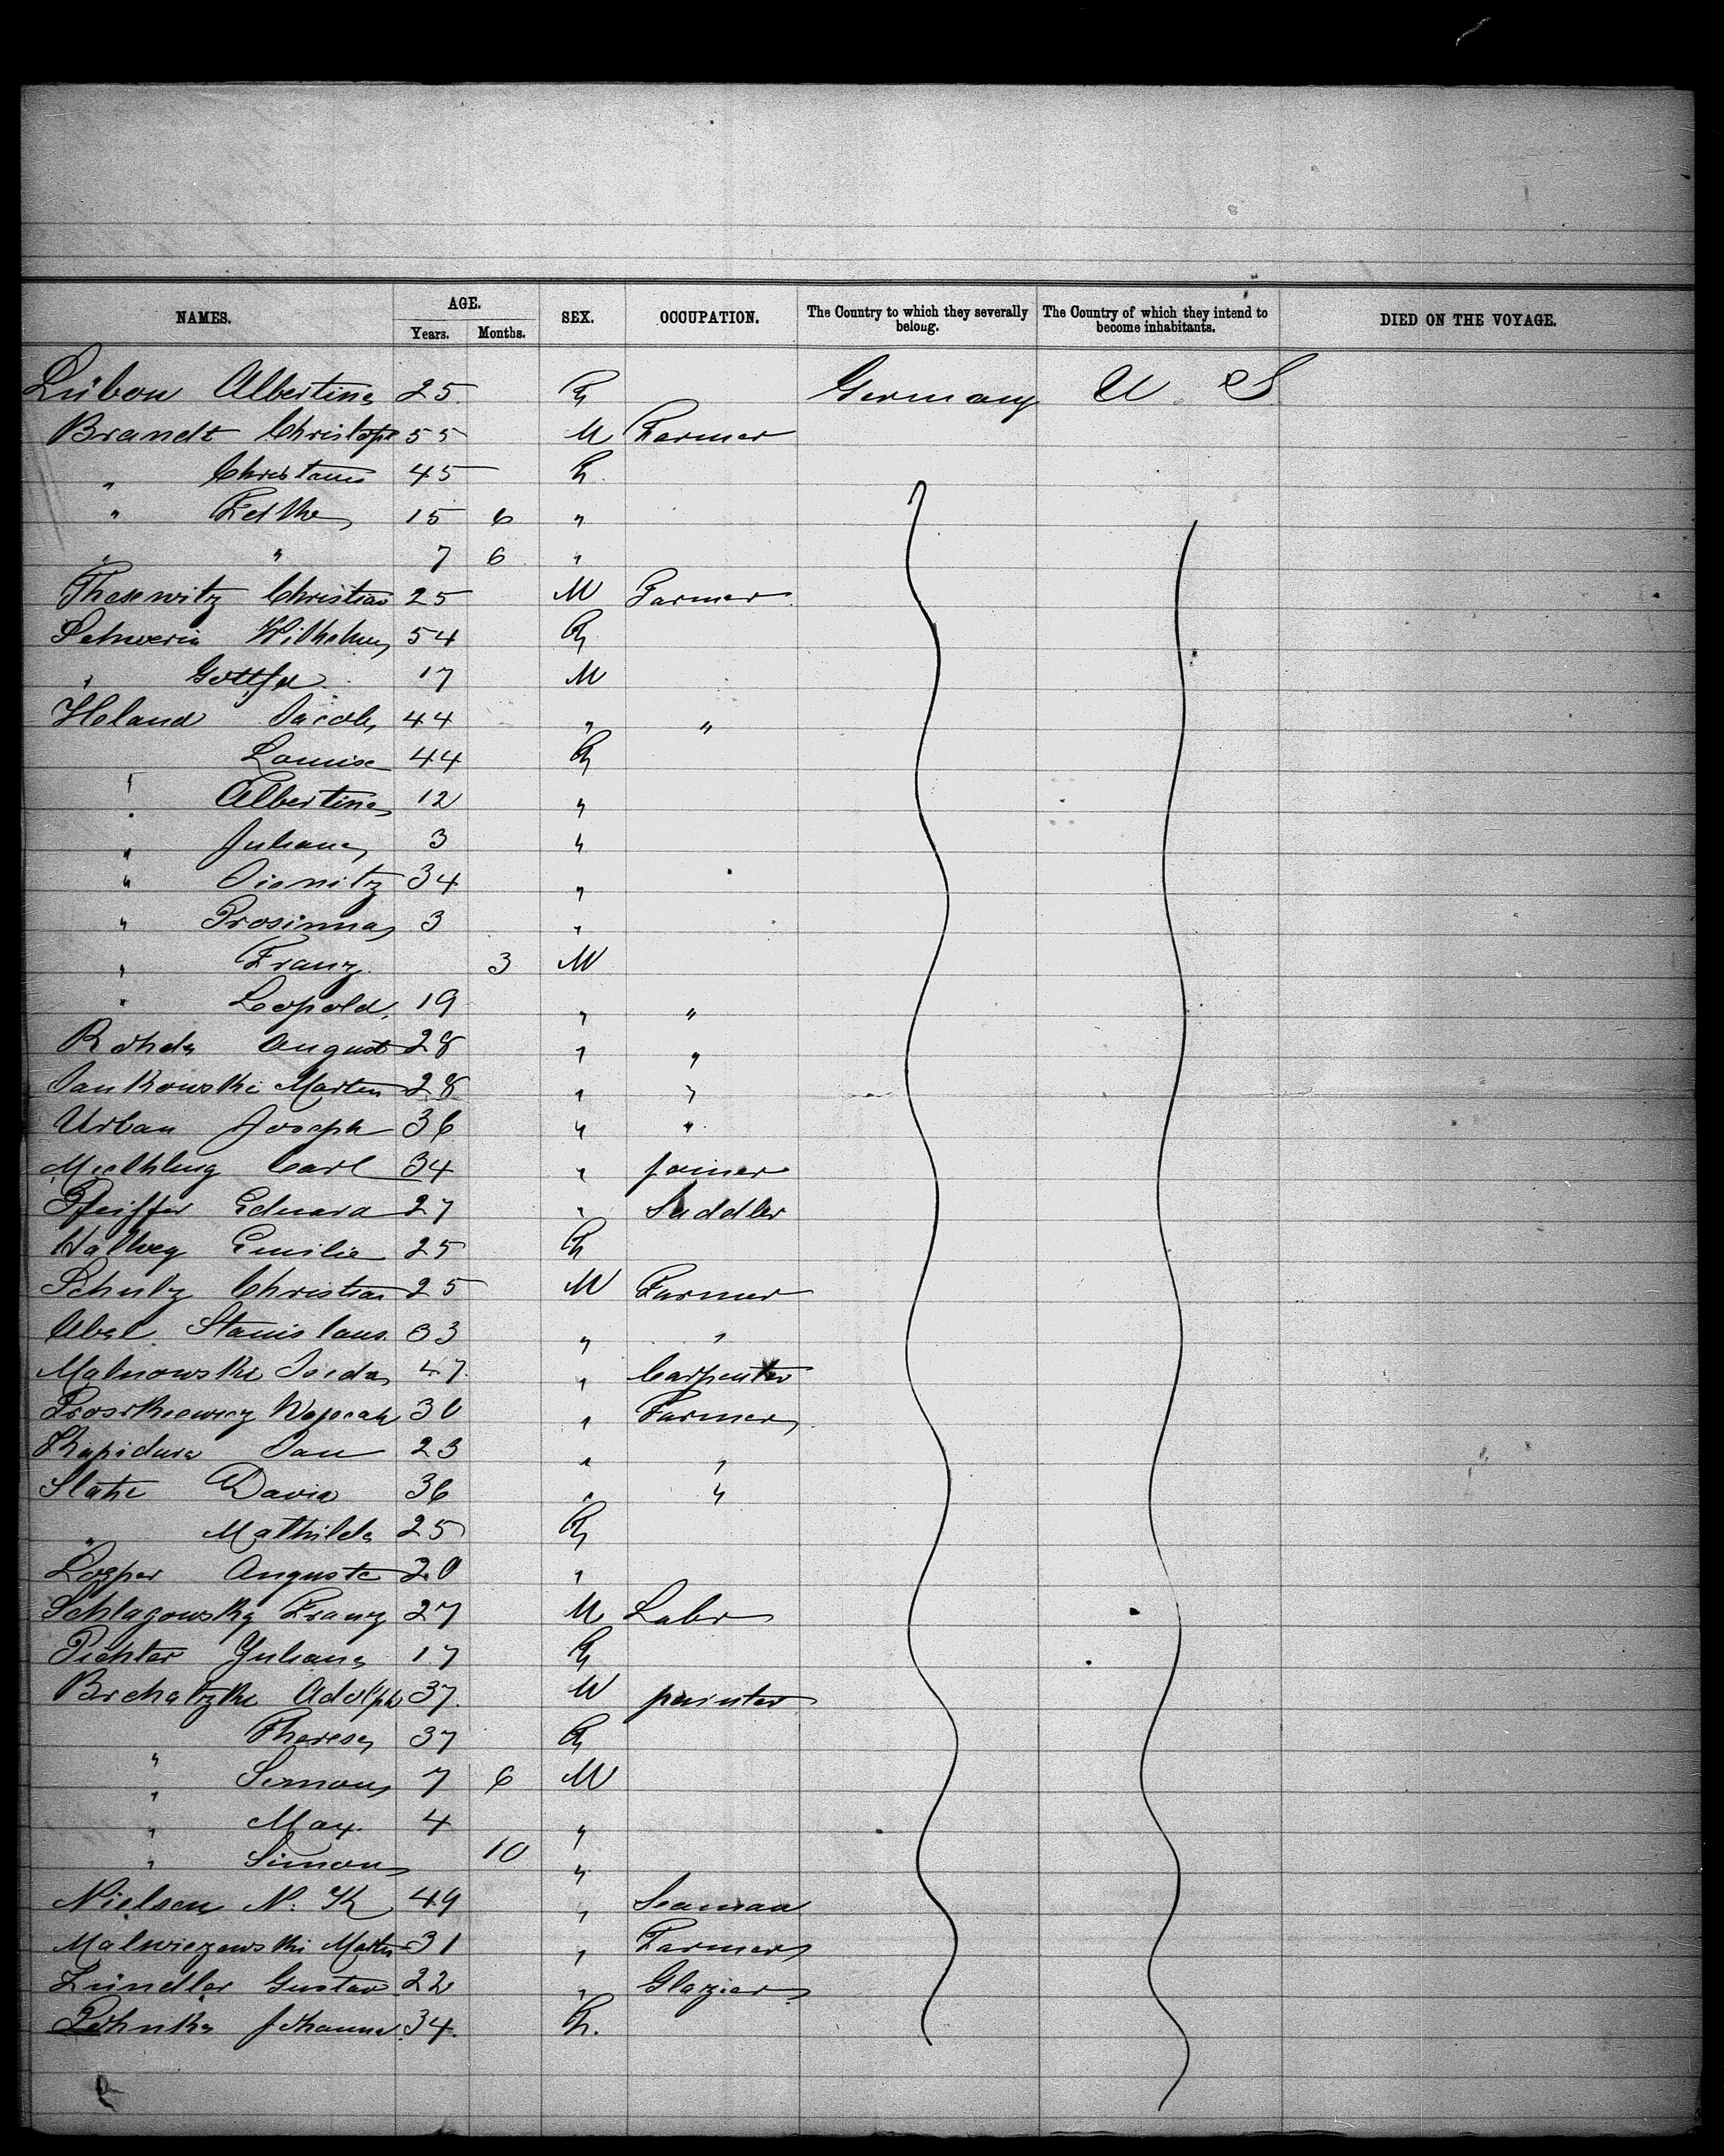 NAMES. AGE. Years. Months. SEX. OCCUPATION. The Country to which they severally belong. The Country of which they intend to become inhabitants. DIED ON THE VOYAGE.
Lübow Albertine 25 F Germany U. S
Brandt Christoph 55 M Farmer
" 45 F
" 15 6 "
" " 7 6 "
Christian 25 M Farmer
Schwerin Wilhelm 54 F
" Gottfd. 17 M
Heland Jacob 44 " "
Louise 44 F
" Albertine 12 "
" Juliane 3 "
" 34 "
" Prosinna 3 "
" Franz 3 M
" Leopold 19 " "
Rohde August 28 " "
Jankowski Marten 28 " "
Urban Joseph 36 " "
Carl 34 " joiner
Pfeiffer Eduard 27 " Saddler
Hallweg Emilie 25 F
Schulz Christian 25 M Farmer
Abel Stanislaus 33 " "
Malnowski 47 " Carpenter
30 " Farmer
Jan 23 " "
David 36 " "
" Mathilde 25 F
Auguste 20 "
Schlagowsky Franz 27 M Labr
Juliane 17 F
Adolph 37 M painter
" Therese 37 F
" Simon 7 6 M
" Max 4 "
" Simon 10 "
Nielsen N. K 49 " Seaman
Martin 31 " Farmer
Zündler Gustav 22 " Glazier
Johanna 34 F.